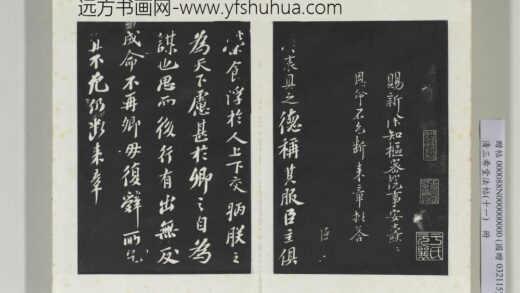 远方书画网-www.yfshuhua.com
賜新除知樞密院事安燾
恩命不允斷来章批答
臣
具之德稱其服臣主俱
榮食浮於人上下交病朕之
為天下慮甚於卿之自為
謀也思而後行有出無反
成命不再卿毋復辭所乞
宜不允仍斷来章
贈帖 000088N000000000 (國贈 032115
清三希堂法帖(十一) 冊